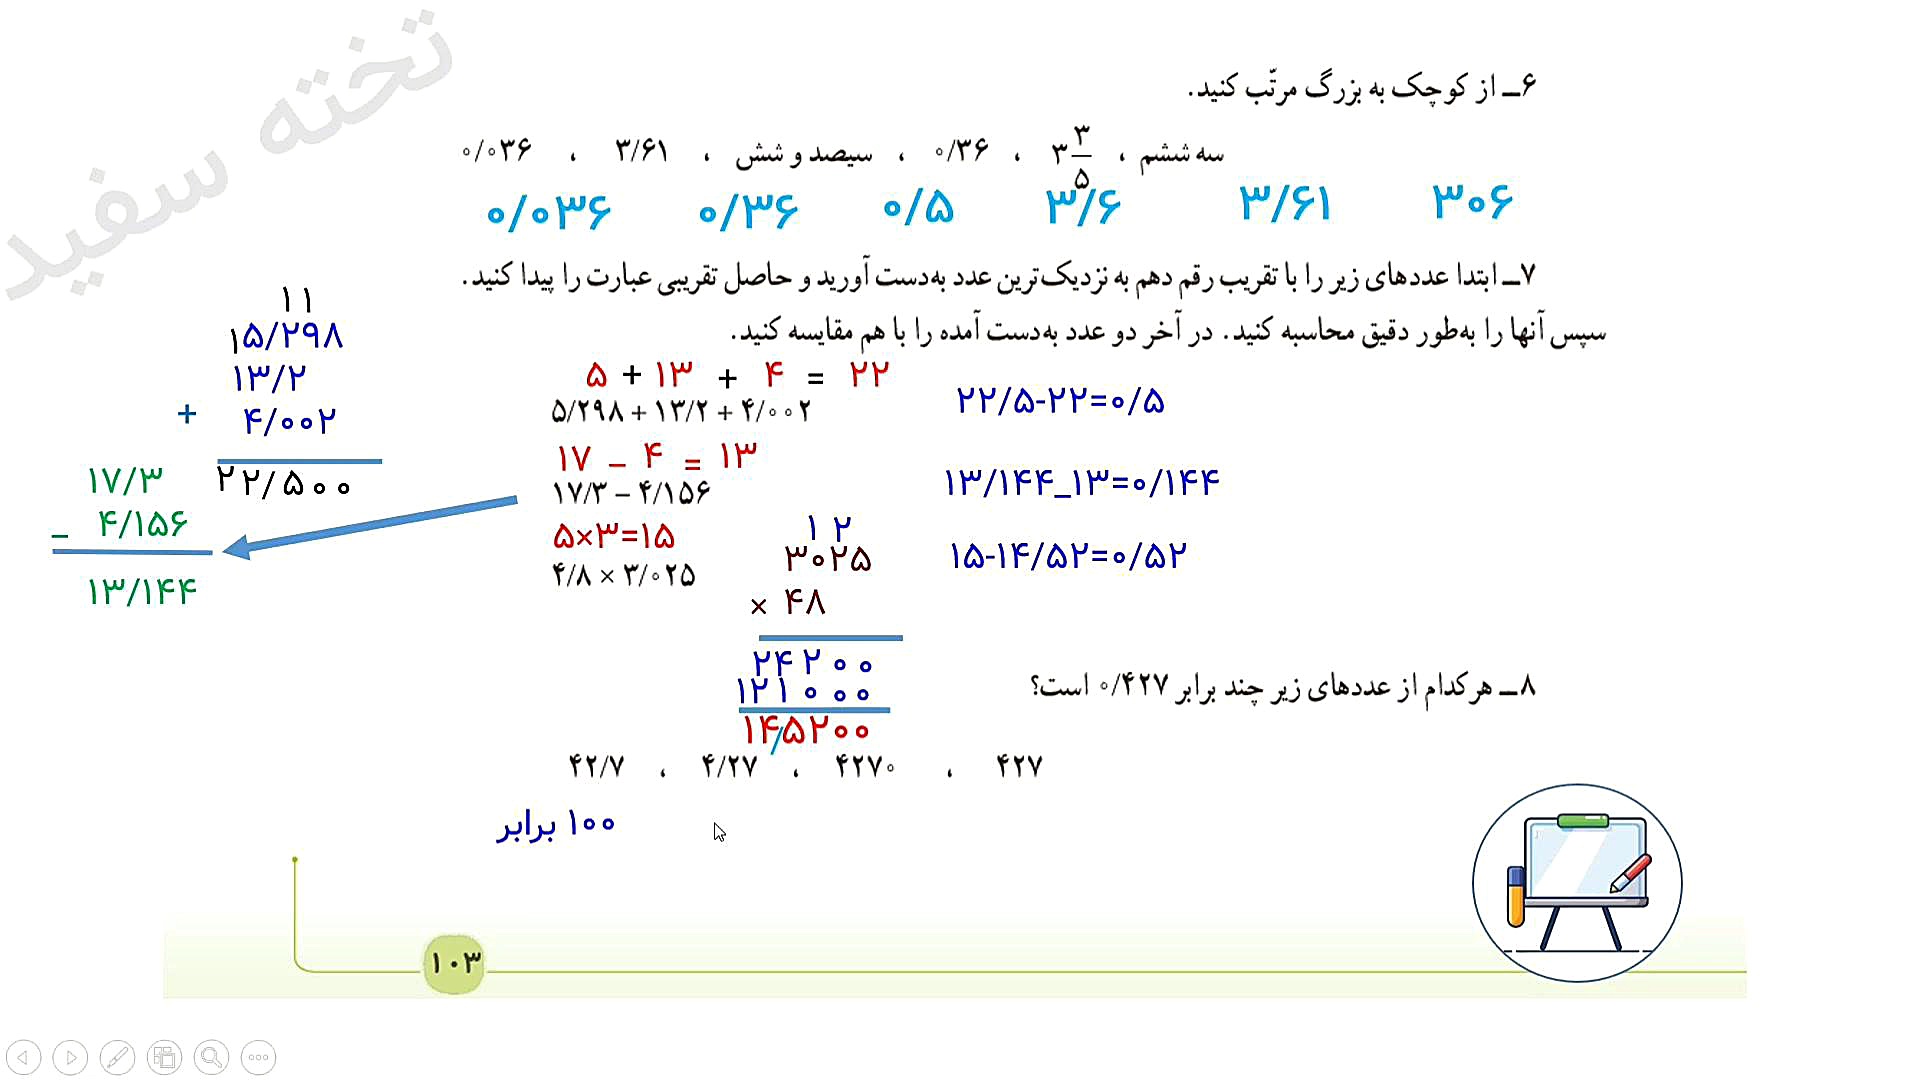 تخته سفید
۶ــ از کوچک به بزرگ مرتّب کنید.
سه ششم ، ۳ ۳/۵ ، ۰/۳۶ ، سیصد و شش ، ۳/۶۱ ، ۰/۰۳۶
۰/۰۳۶ ۰/۳۶ ۰/۵ ۳/۶ ۳/۶۱ ۳۰۶
۷ــ ابتدا عددهای زیر را با تقریب رقم دهم به نزدیک‌ترین عدد به‌دست آورید و حاصل تقریبی عبارت را پیدا کنید.
سپس آنها را به‌طور دقیق محاسبه کنید. در آخر دو عدد به‌دست آمده را با هم مقایسه کنید.
۱ ۱
۱۵/۲۹۸
۱۳/۲
+ ۴/۰۰۲
۲۲/۵۰۰
۵ + ۱۳ + ۴ = ۲۲
۵/۲۹۸ + ۱۳/۲ + ۴/۰۰۲
۲۲/۵-۲۲=۰/۵
۱۷ _ ۴ = ۱۳
۱۷/۳ – ۴/۱۵۶
۱۳/۱۴۴_۱۳=۰/۱۴۴
۱۷/۳
_ ۴/۱۵۶
۱۳/۱۴۴
۵×۳=۱۵
۴/۸ × ۳/۰۲۵
۱۵-۱۴/۵۲=۰/۵۲
۱ ۲
۳۰۲۵
× ۴۸
۲۴۲۰۰
۱۲۱۰۰۰
۱۴/۵۲۰۰
۸ــ هرکدام از عددهای زیر چند برابر ۰/۴۲۷ است؟
۴۲/۷ ، ۴/۲۷ ، ۴۲۷۰ ، ۴۲۷
۱۰۰ برابر
۱۰۳